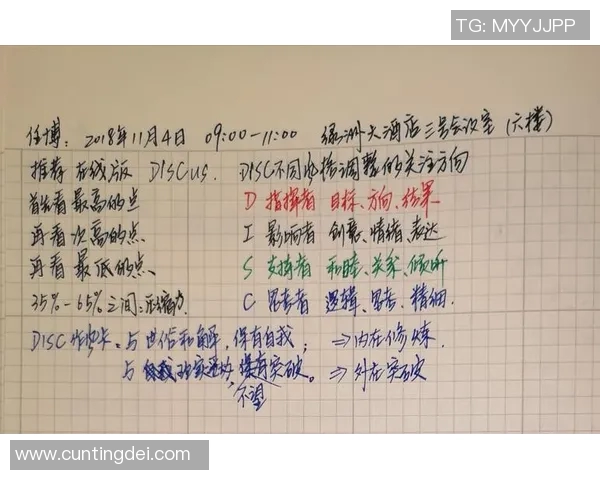 TG: MYYJJPP
任博: 2018年11月4日 09:00-11:00 绿洲大酒店三号会议室 (六楼)
推荐在线版 DISCus. DISC不同风格调整的关注方向
首先看最高的点 D 指挥者 目标、方向、结果
再看次高的点 I 影响者 创意、情绪、表达
再看最低的点 S 支持者 和睦、关系、倾听
35%-65%之间: C 思考者 逻辑、思考、精细.
DISC 与世俗和解, 保有自我; ⇒内在修炼
与 突破。⇒外在突破
不望
www.cuntingdei.com